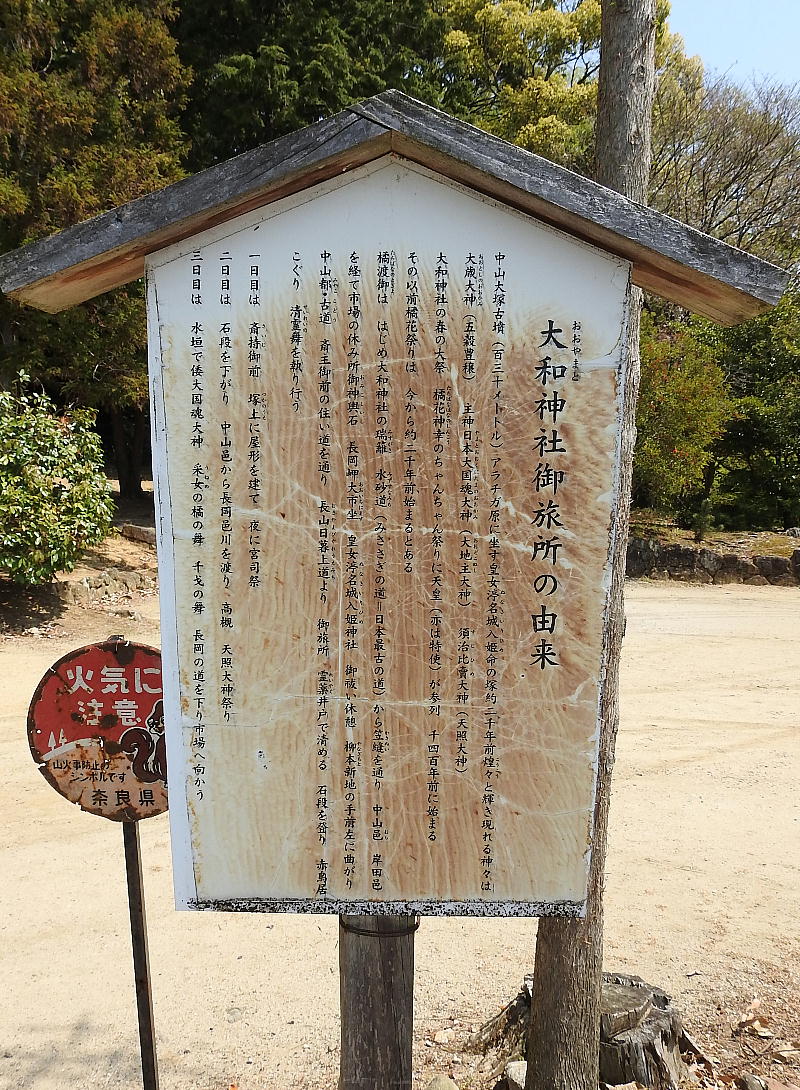 大和神社御旅所の由来
おおやまと
中山大塚古墳(百三十メートトル)アラチガ原に坐す皇女渟名城入姫命の塚約二千年前煌々と輝き現れる神々は
大歳大神(五穀豊穣) 主神日本大国魂大神(大地主大神) 須治比賣大神(天照大神)
大和神社の春の大祭 橘花神幸のちゃんちゃん祭りに天皇(亦は特使)が参列 千四百年前に始まる
その以前橘花祭りは 今から約二千年前始まるとある
橘渡御は はじめ大和神社の瑞籬 水砂道(みささぎの道=日本最古の道)から笠縫を通り 中山邑 岸田邑
を経て市場の休み所御神輿石 長岡岬大市坐 皇女渟名城入姫神社 御祓い休憩 柳本新地の手前左に曲がり
中山都・古道 斎王御前の住い道を通り 長山日暮上道より 御旅所 霊薬井戸で清める 石段を登り 赤鳥居
こぐり 清霊舞を執り行う
一日目は 斎持御前 塚上に屋形を建て 夜に宮司祭
二日目は 石段を下がり 中山邑から長岡邑川を渡り 高槻 天照大神祭り
三日目は 水垣で倭大国魂大神 采女の橘の舞 千戈の舞 長岡の道を下り市場へ向かう
火気に
注意
山火事防止の
シンボルです
奈良県